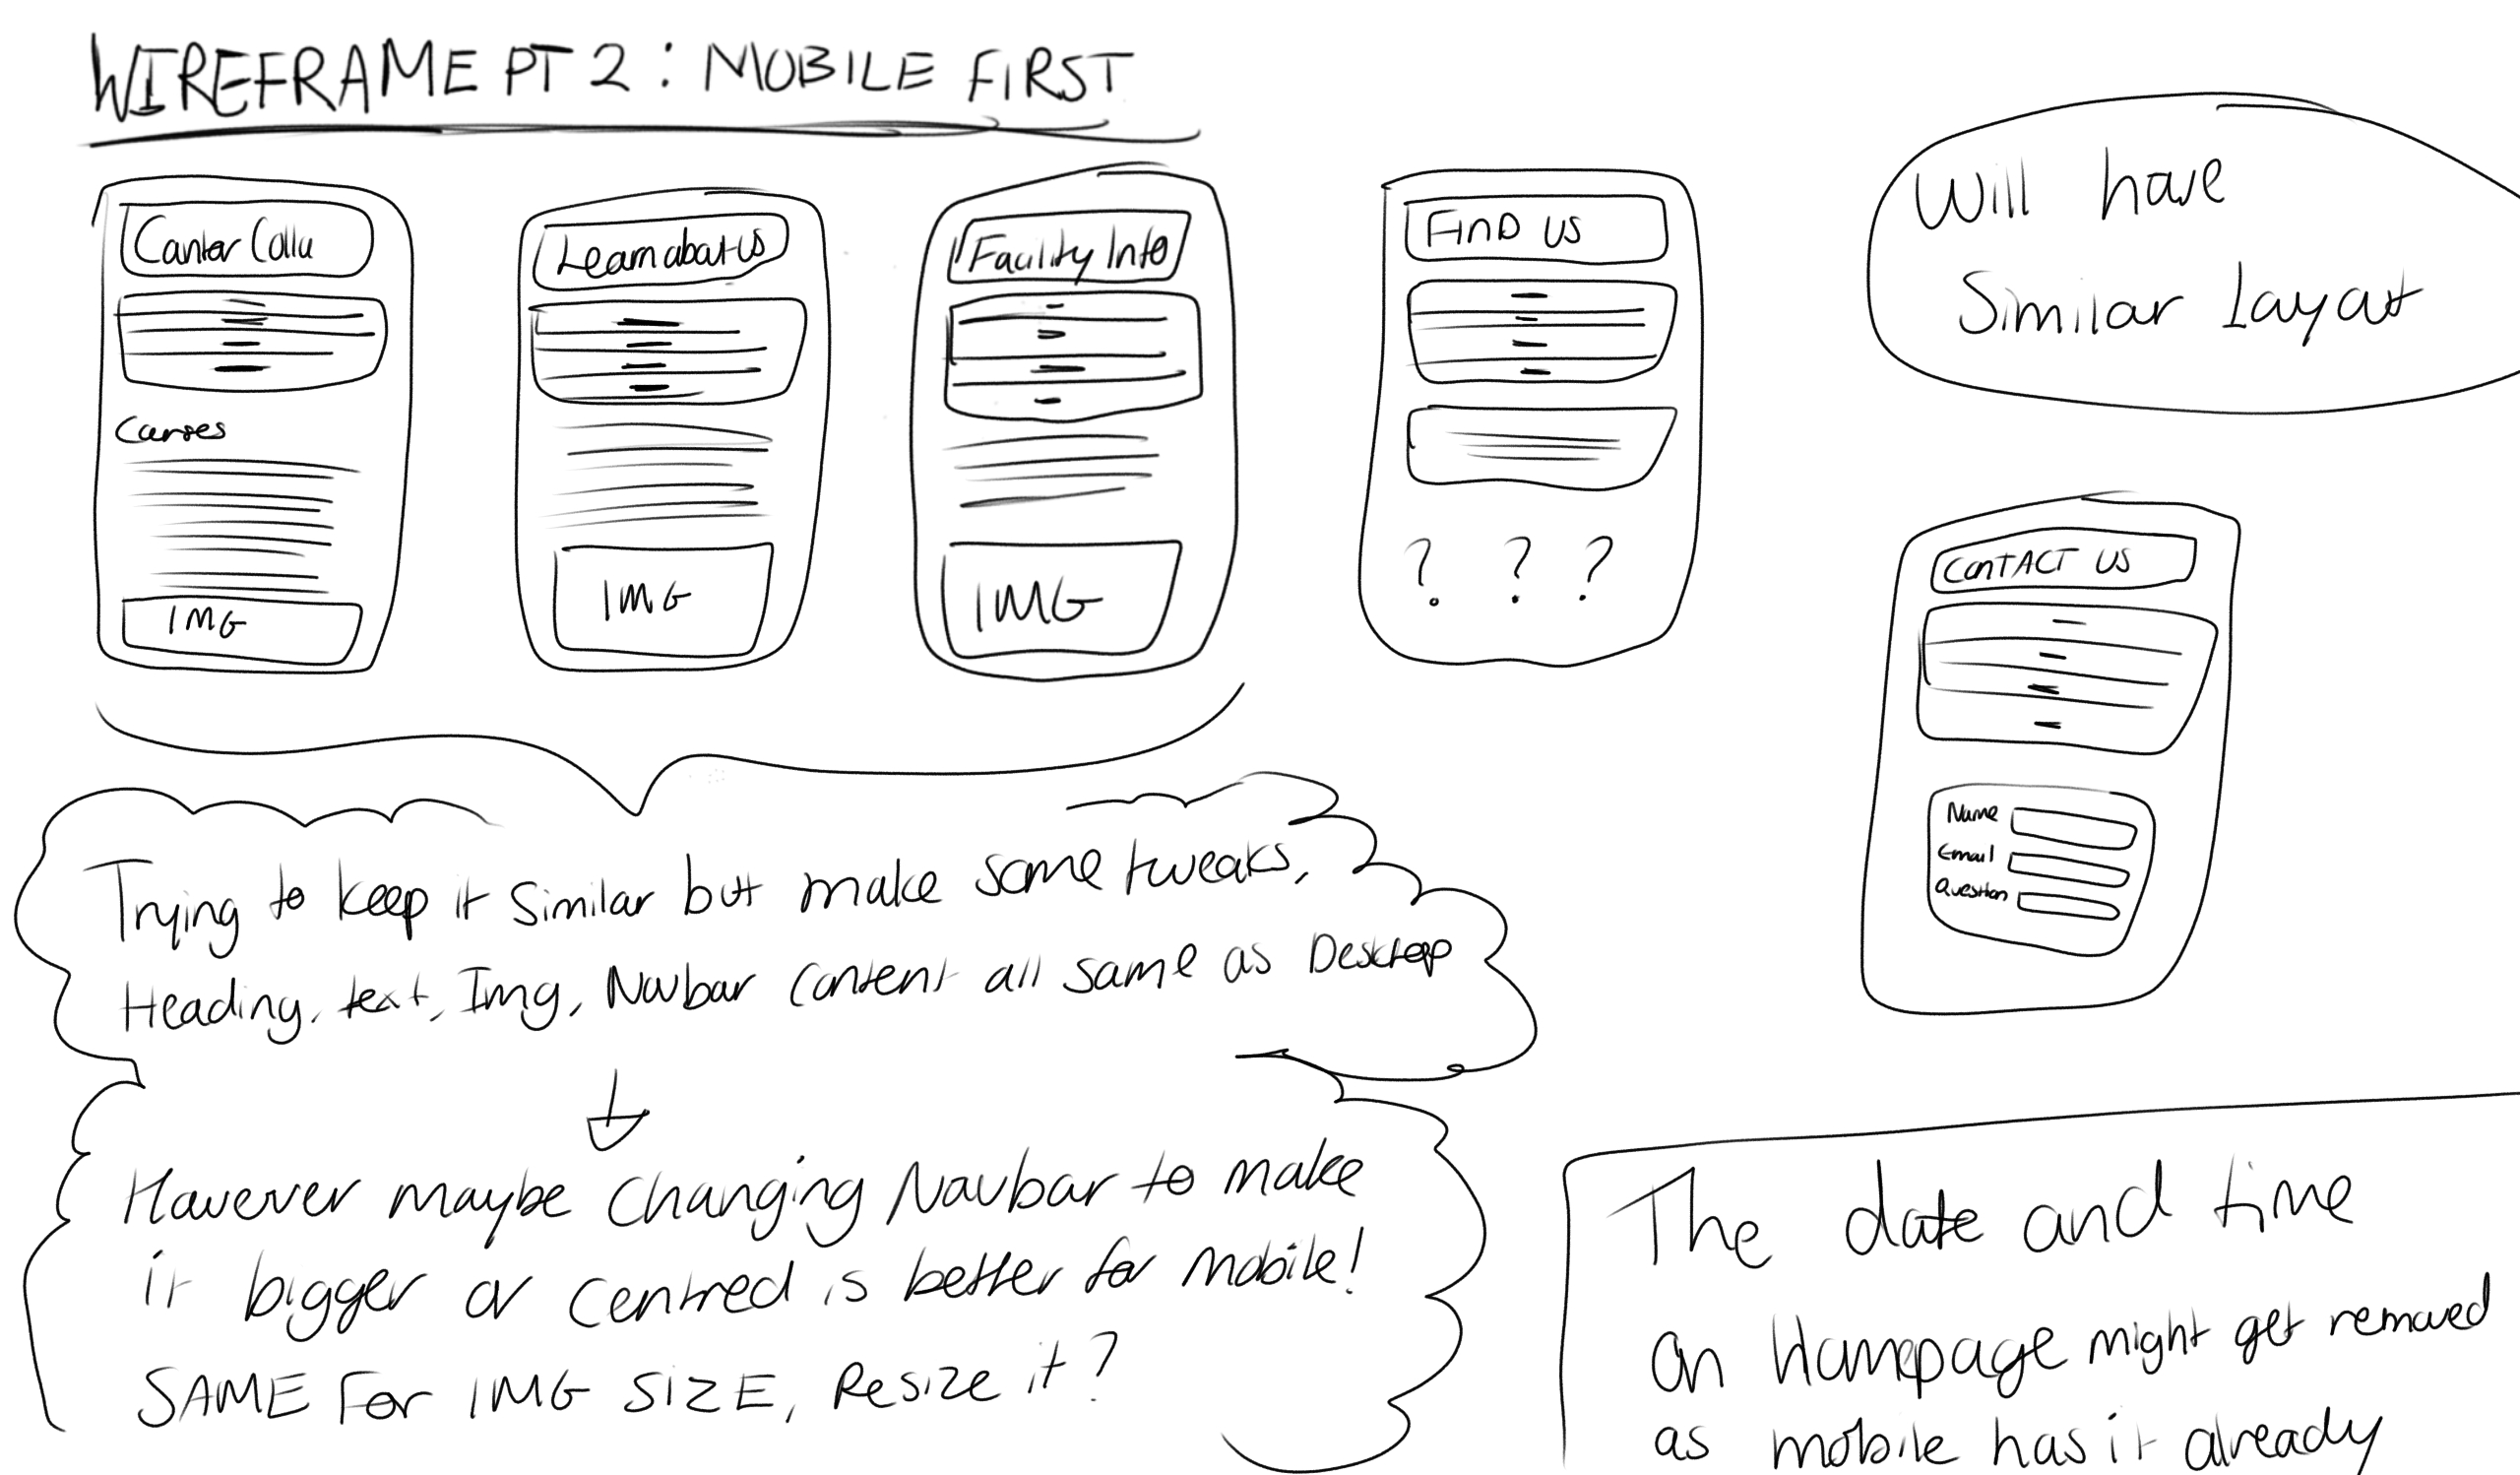 WIREFRAME PT 2 : MOBILE FIRST
Learn about us
Facility Info
FIND US
Will have
Similar Layout
Courses
IMG
IMG
IMG
? ? ?
CONTACT US
Name
Email
Question
Trying to keep it similar but make some tweaks,
Heading, text, Img, Navbar content all same as Desktop
However maybe changing Navbar to make
it bigger or centred is better for mobile!
SAME FOR IMG SIZE, Resize it?
The date and time
on homepage might get removed
as mobile has it already